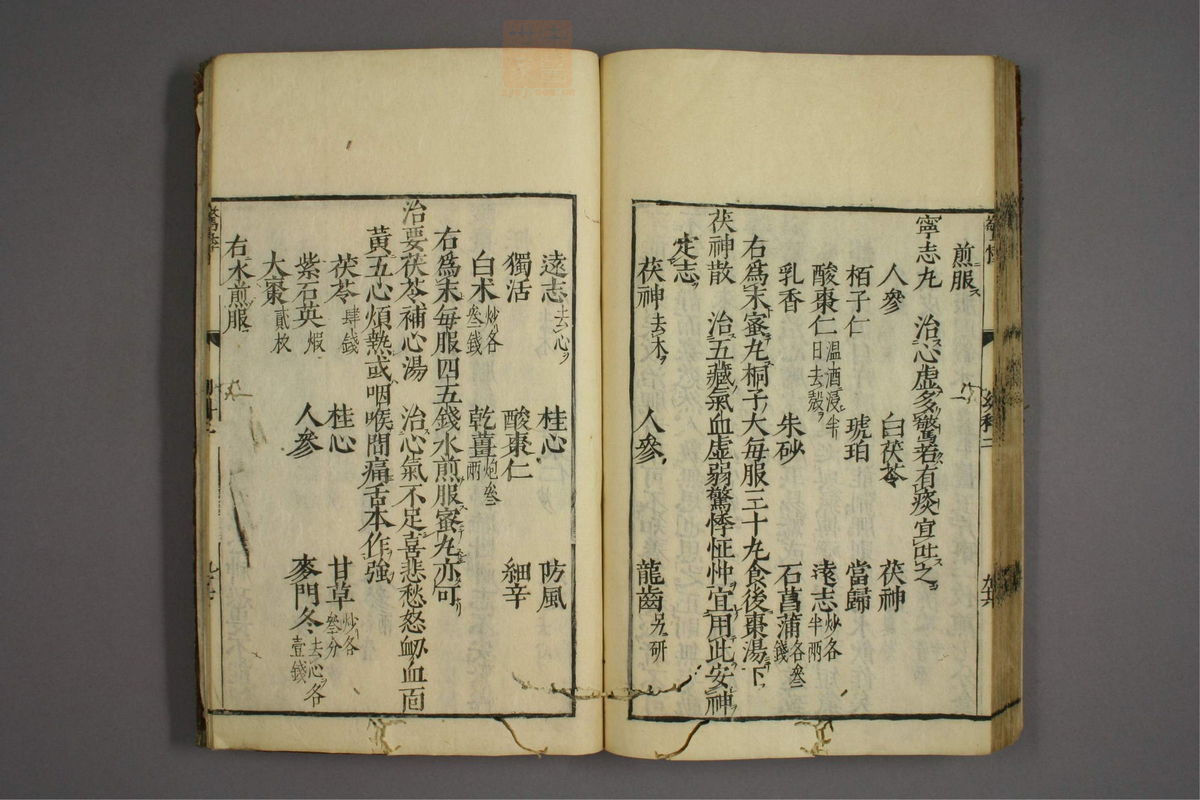 煎服
寧志丸 治心虚多驚若有痰宜此之
人參 白茯苓 茯神
栢子仁 琥珀 當歸
酸棗仁温酒浸半日去殼 遠志炒各半兩
乳香 朱砂 石菖蒲各叄錢
右爲末蜜丸桐子大毎服三十丸食後棗湯下
茯神散 治五藏氣血虚弱驚悸怔忡宜用此安神
定志
茯神去木 人參 龍齒另研
遠志去心 桂心 防風
獨活 酸棗仁 細辛
白朮炒各叄錢 乾薑炮叄兩
右爲末毎服四五錢水煎服蜜丸亦可
治要茯苓補心湯 治心氣不足喜悲愁怒衂血面
黄五心煩熱或咽喉間痛舌本作強
茯苓肆錢 桂心 甘草炒各叄分
紫石英煆 人參 麥門冬去心各壹錢
大棗貳枚
右水煎服